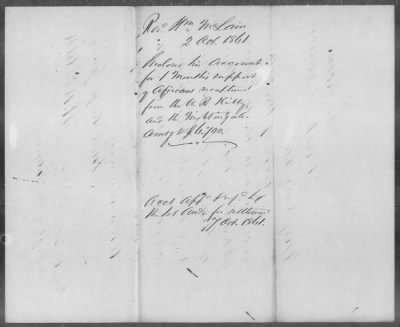 Rev. Wm McLain
2 Oct. 1861.
Encloses his account
for 1 Months support
of Africans recaptured
from the W. R. Kibby,
and the Nightingale
Amtg
Acct
the 1st Aud. for settlement
7 Oct. 1861.